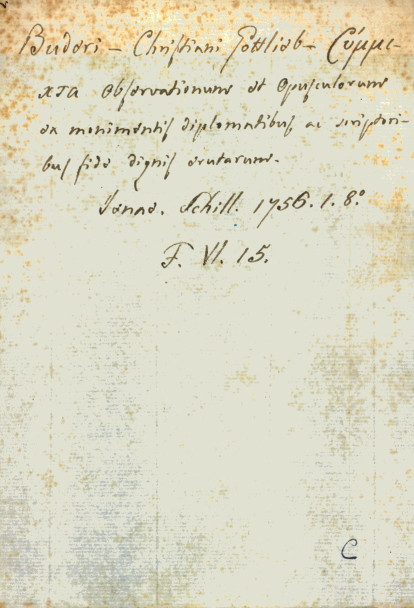 Buderi – Christiani Gottlieb – Σύμμι-
κτα Observationum et Opusculorum
ex monimentis diplomatibus ac scriptori-
bus fide dignis erutarum.
Jenae. Schill. 1756. 1. 8.º
F. VI. 15.
C